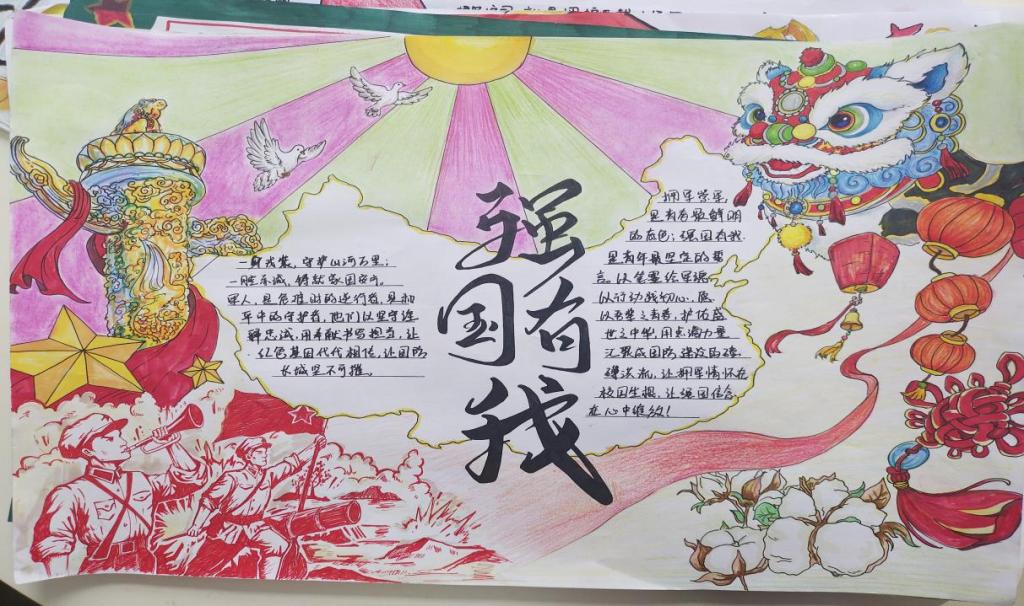 强国有我
一身戎装，守护山河万里；
一腔赤诚，铸就家国安宁。
军人，是危难时的逆行者，是和
平中的守护者，他们以坚守诠
释忠诚，用奉献书写担当，让
红色基因代代相传，让国防
长城坚不可摧。
拥军崇军，
是青春最鲜明
的底色；强国有我
是青年最坚定的誓
言。以笔墨绘军魂，
以行动践初心，愿
以吾辈之青春，护佑盛
世之中华，用点滴力量
汇聚成国防建设的磅
礴洪流，让拥军情怀在
校园生根，让强国信念
在心中绽放！